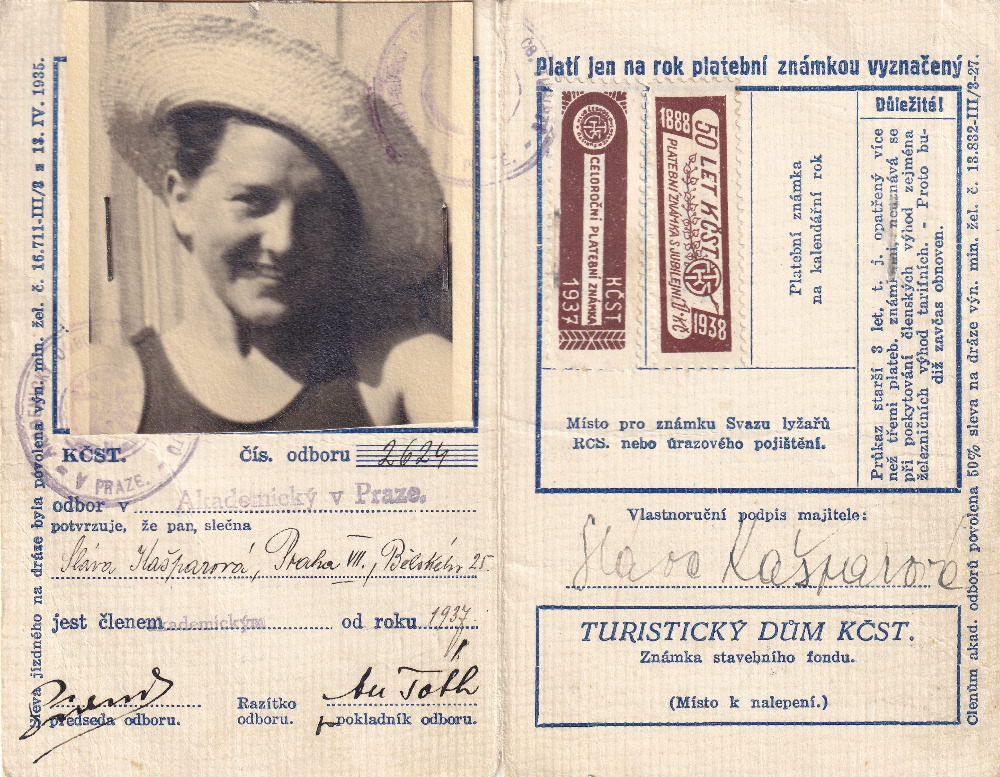 Sleva jízdného na dráze byla povolena výn. min. žel. č. 16.711-III/3 z 13. IV. 1935.
KČST.
čís. odboru 2624
V PRAZE.
odbor v Akademický v Praze.
potvrzuje, že pan, slečna
Sláva Kašparová, Praha VII., Bělského 25.
jest členem akademickým od roku 1937
předseda odboru.
Razítko
odboru.
pokladník odboru.
Platí jen na rok platební známkou vyznačený
CELOROČNÍ PLATEBNÍ ZNÁMKA
KČST
1937
1888
50 LET KČST
PLATEBNÍ ZNÁMKA S JUBILEJNÍ
1938
Platební známka
na kalendářní rok
Důležitá!
Průkaz starší 3 let, t. j. opatřený více
než třemi plateb. známkami, neuznává se
při poskytování členských výhod zejména
železničních výhod tarifních. - Proto bu-
diž zavčas obnoven.
Místo pro známku Svazu lyžařů
RČS. nebo úrazového pojištění.
Vlastnoruční podpis majitele:
Slava Kašparová
TURISTICKÝ DŮM KČST.
Známka stavebního fondu.
(Místo k nalepení.)
Členům akad. odborů povolena 50% sleva na dráze výn. min. žel. č. 13.832-III/3-27.